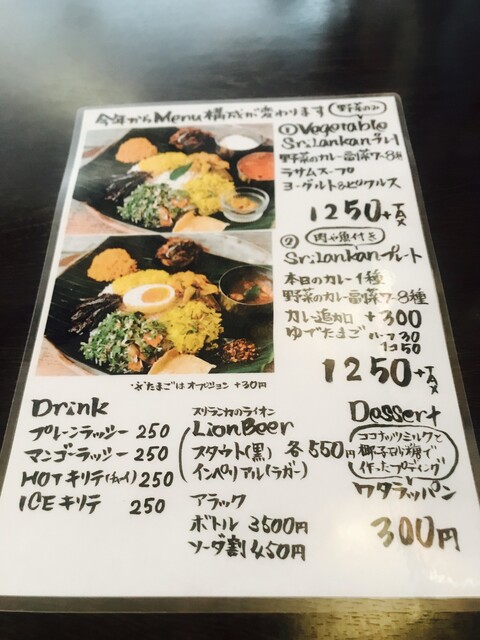 今年からMenu構成が変わります
野菜のみ
① Vegetable
Sri Lankanプレート
野菜のカレー副菜7~8種
ラサムスープ
ヨーグルト&ピクルス
1250+TAX
② 肉や魚付き
Sri Lankanプレート
本日のカレー1種
野菜のカレー副菜7~8種
カレー追加 +300
ゆでたまご ハーフ30
1コ50
1250+TAX
※たまごはオプション +30円
Drink
プレーンラッシー 250
マンゴーラッシー 250
HOTキリテ(チャイ) 250
ICEキリテ 250
スリランカのライオン
Lion Beer
スタウト(黒) 各550円
インペリアル(ラガー)
アラック
ボトル 3500円
ソーダ割 450円
Dessert
ココナッツミルクと
椰子砂糖で
作ったプディング
ワタラッパン
300円